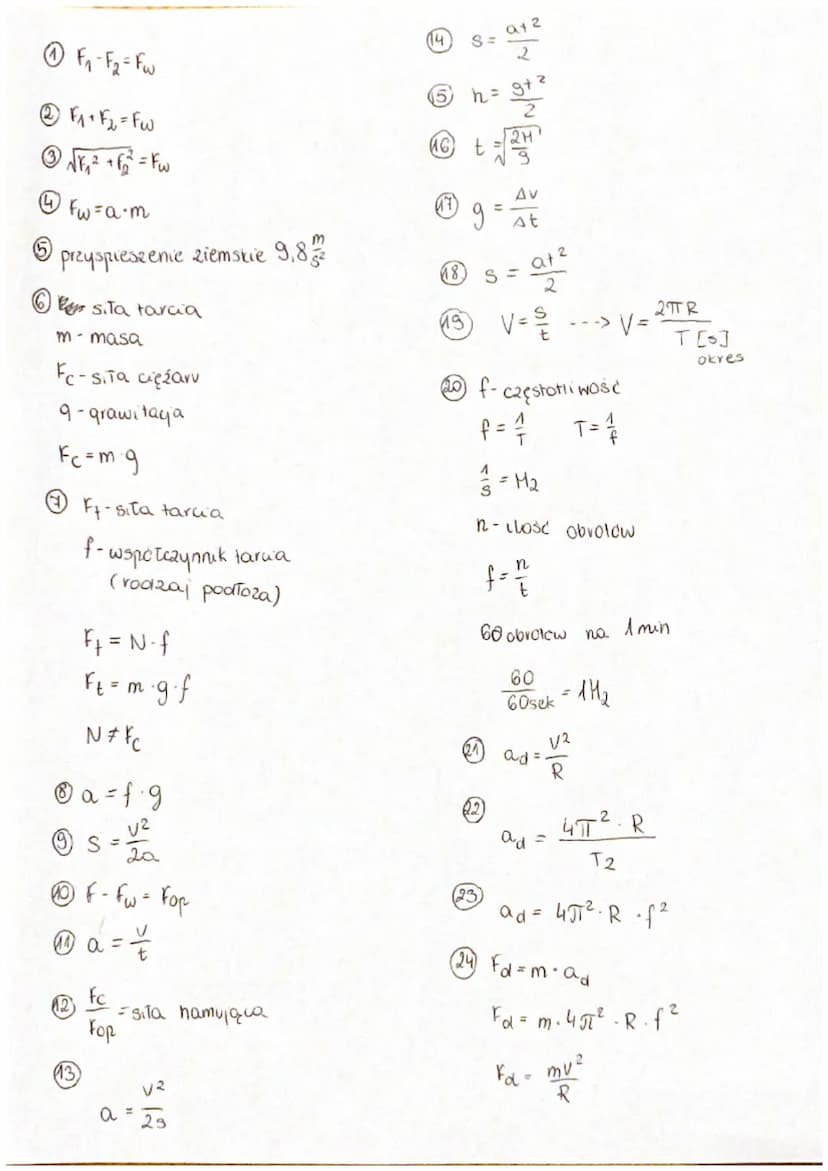 ① F₁ - F₂ = Fw
② F₁ + F₂ = Fw
③ √F₁² + F₂² = Fw
④ Fw = a · m
⑤ przyspieszenie ziemskie 9,8 m/s²
⑥ siła tarcia
m - masa
Fc - siła ciężaru
g - grawitacja
Fc = m · g
⑦ Ft - siła tarcia
f - współczynnik tarcia
(rodzaj podłoża)
Ft = N · f
Ft = m · g · f
N ≠ Fc
⑧ a = f · g
⑨ s = v²/2a
⑩ F - Fw = Fop
⑪ a = v/t
⑫ Fc/Fop = siła hamująca
⑬ a = v²/2s
⑭ s = at²/2
⑮ h = gt²/2
⑯ t = √2H/g
⑰ g = Δv/Δt
⑱ s = at²/2
⑲ V = s/t ---> V = 2πR/T [s]
okres
⑳ f - częstotliwość
f = 1/T T = 1/f
1/s = Hz
n - ilość obrotów
f = n/t
60 obrotów na 1 min
60/60sek = 1Hz
㉑ ad = v²/R
㉒ ad = 4π² · R/T2
㉓ ad = 4π² · R · f²
㉔ Fd = m · ad
Fd = m · 4π² · R · f²
Fd = mv²/R